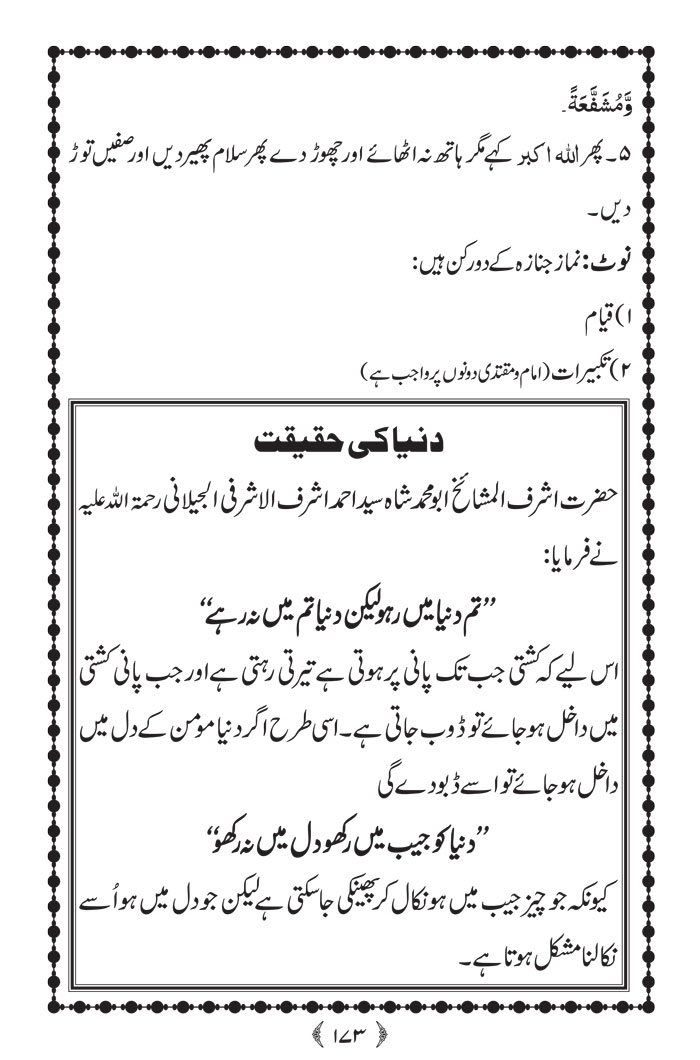 وَّمُشَفَّعَةً۔
۵۔ پھر اللہ اکبر کہے مگر ہاتھ نہ اٹھائے اور چھوڑ دے پھر سلام پھیر دیں اور صفیں توڑ
دیں۔
نوٹ: نماز جنازہ کے دو رکن ہیں:
۱) قیام
۲) تکبیرات (امام و مقتدی دونوں پر واجب ہے)
دنیا کی حقیقت
حضرت اشرف المشائخ ابو محمد شاہ سید احمد اشرف الاشرفی الجیلانی رحمۃ اللہ علیہ
نے فرمایا:
”تم دنیا میں رہو لیکن دنیا تم میں نہ رہے“
اس لیے کہ کشتی جب تک پانی پر ہوتی ہے تیرتی رہتی ہے اور جب پانی کشتی
میں داخل ہو جائے تو ڈوب جاتی ہے۔ اسی طرح اگر دنیا مومن کے دل میں
داخل ہو جائے تو اسے ڈبو دے گی
”دنیا کو جیب میں رکھو دل میں نہ رکھو“
کیونکہ جو چیز جیب میں ہو نکال کر پھینکی جاسکتی ہے لیکن جو دل میں ہو اُسے
نکالنا مشکل ہوتا ہے۔
﴿۱۷۳﴾